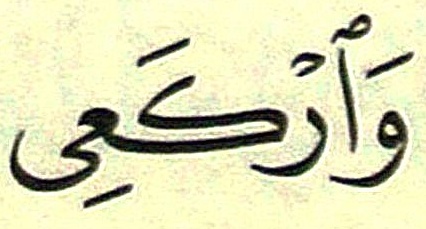 وَٱرْكَعِى